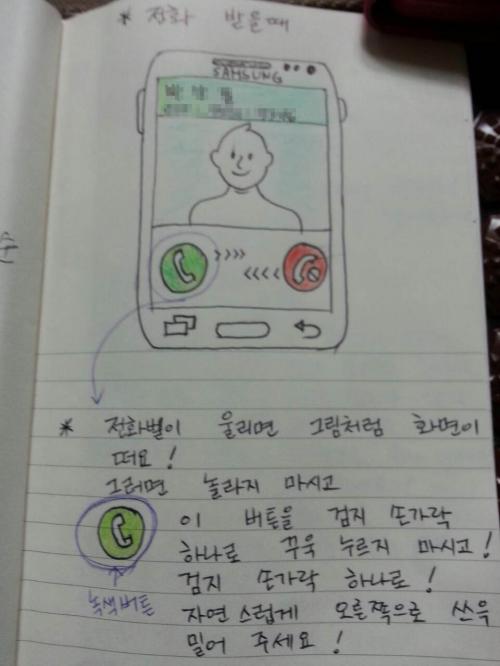 * 전화 받을때
SAMSUNG
>>>>
<<<<
* 전화벨이 울리면 그림처럼 화면이
떠요!
그러면 놀라지 마시고
이 버튼을 검지 손가락
하나로 꾸욱 누르지 마시고!
녹색버튼
검지 손가락 하나로!
자연스럽게 오른쪽으로 쓰윽
밀어 주세요!